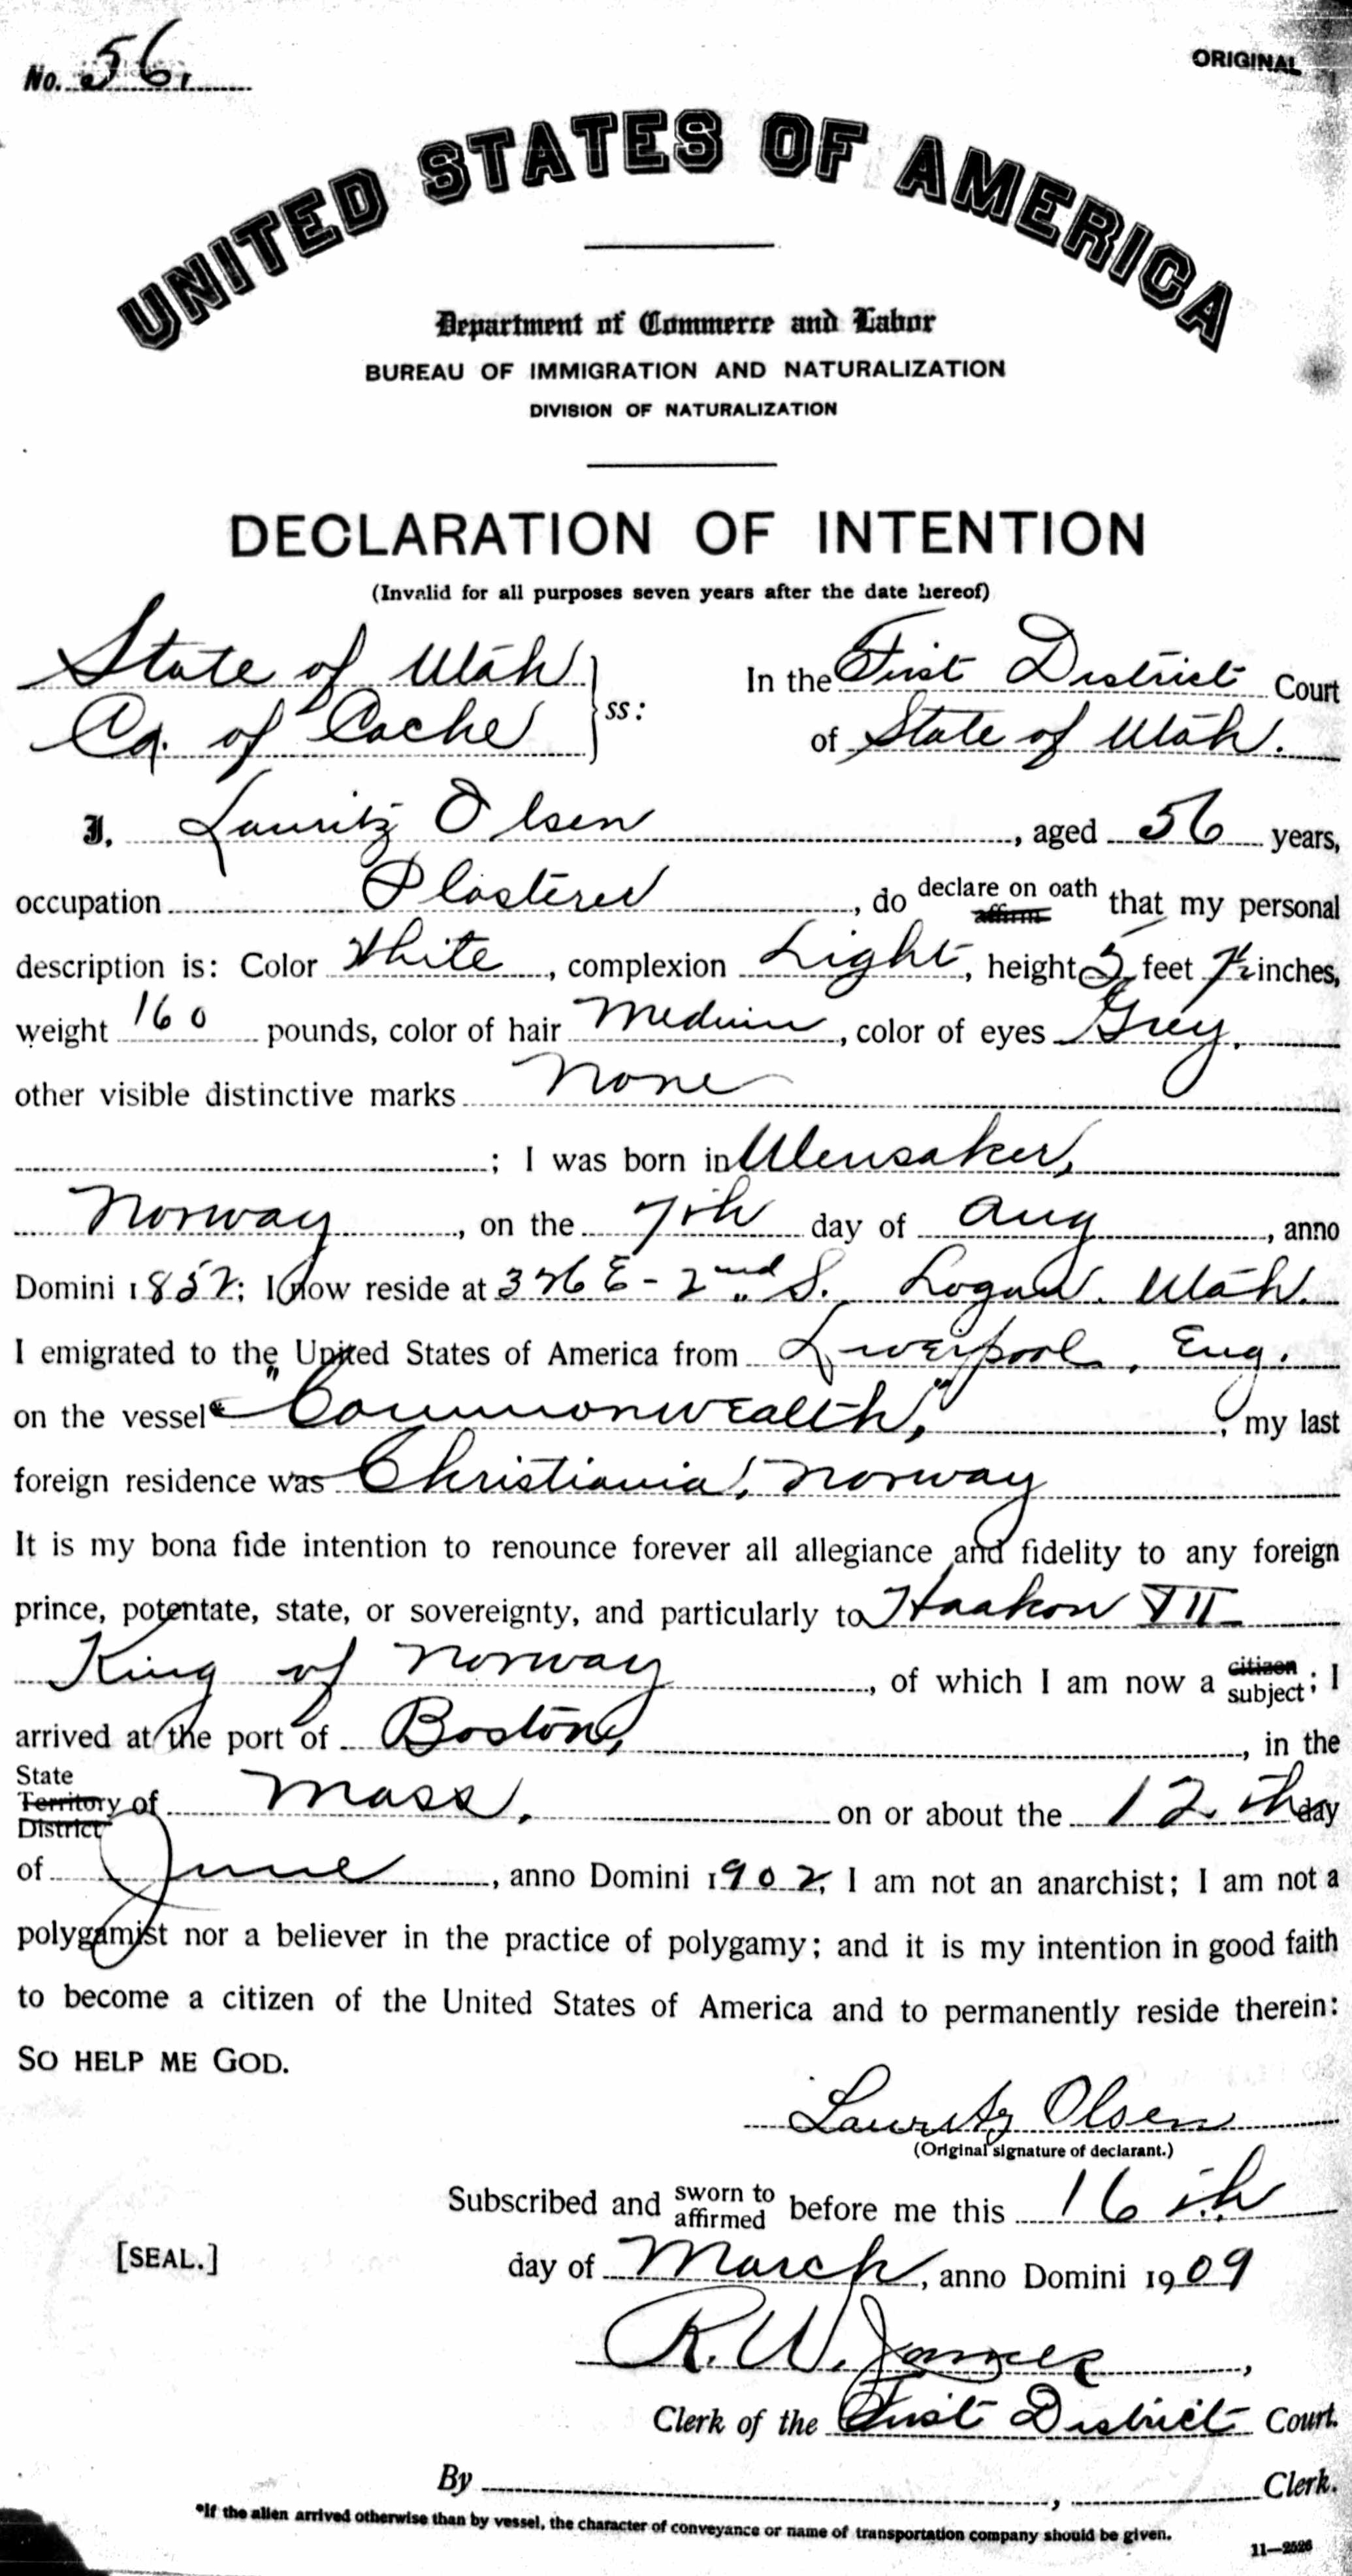 No. 56,
ORIGINAL
UNITED STATES OF AMERICA
Department of Commerce and Labor
BUREAU OF IMMIGRATION AND NATURALIZATION
DIVISION OF NATURALIZATION
DECLARATION OF INTENTION
(Invalid for all purposes seven years after the date hereof)
State of Utah } ss: In the First District Court
Co. of Cache of State of Utah.
I, Lauritz Olsen, aged 56 years,
occupation Plasterer, do declare on oath affirm that my personal
description is: Color White, complexion Light, height 5 feet 7½ inches,
weight 160 pounds, color of hair Medium, color of eyes Grey.
other visible distinctive marks None
; I was born in Ulensaker,
Norway, on the 7th day of Aug, anno
Domini 1852; I now reside at 376 E - 2nd S. Logan. Utah.
I emigrated to the United States of America from Liverpool, Eng.
on the vessel* "Commonwealth,", my last
foreign residence was Christiania, Norway
It is my bona fide intention to renounce forever all allegiance and fidelity to any foreign
prince, potentate, state, or sovereignty, and particularly to Haakon VII
King of Norway, of which I am now a citizen subject; I
arrived at the port of Boston, in the
State Territory District of Mass, on or about the 12th day
of June, anno Domini 1902; I am not an anarchist; I am not a
polygamist nor a believer in the practice of polygamy; and it is my intention in good faith
to become a citizen of the United States of America and to permanently reside therein:
SO HELP ME GOD.
Lauritz Olsen
(Original signature of declarant.)
Subscribed and sworn to affirmed before me this 16th
[SEAL.] day of March, anno Domini 1909
R. W. James,
Clerk of the First District Court.
By , Clerk.
*If the alien arrived otherwise than by vessel, the character of conveyance or name of transportation company should be given.
11—2526